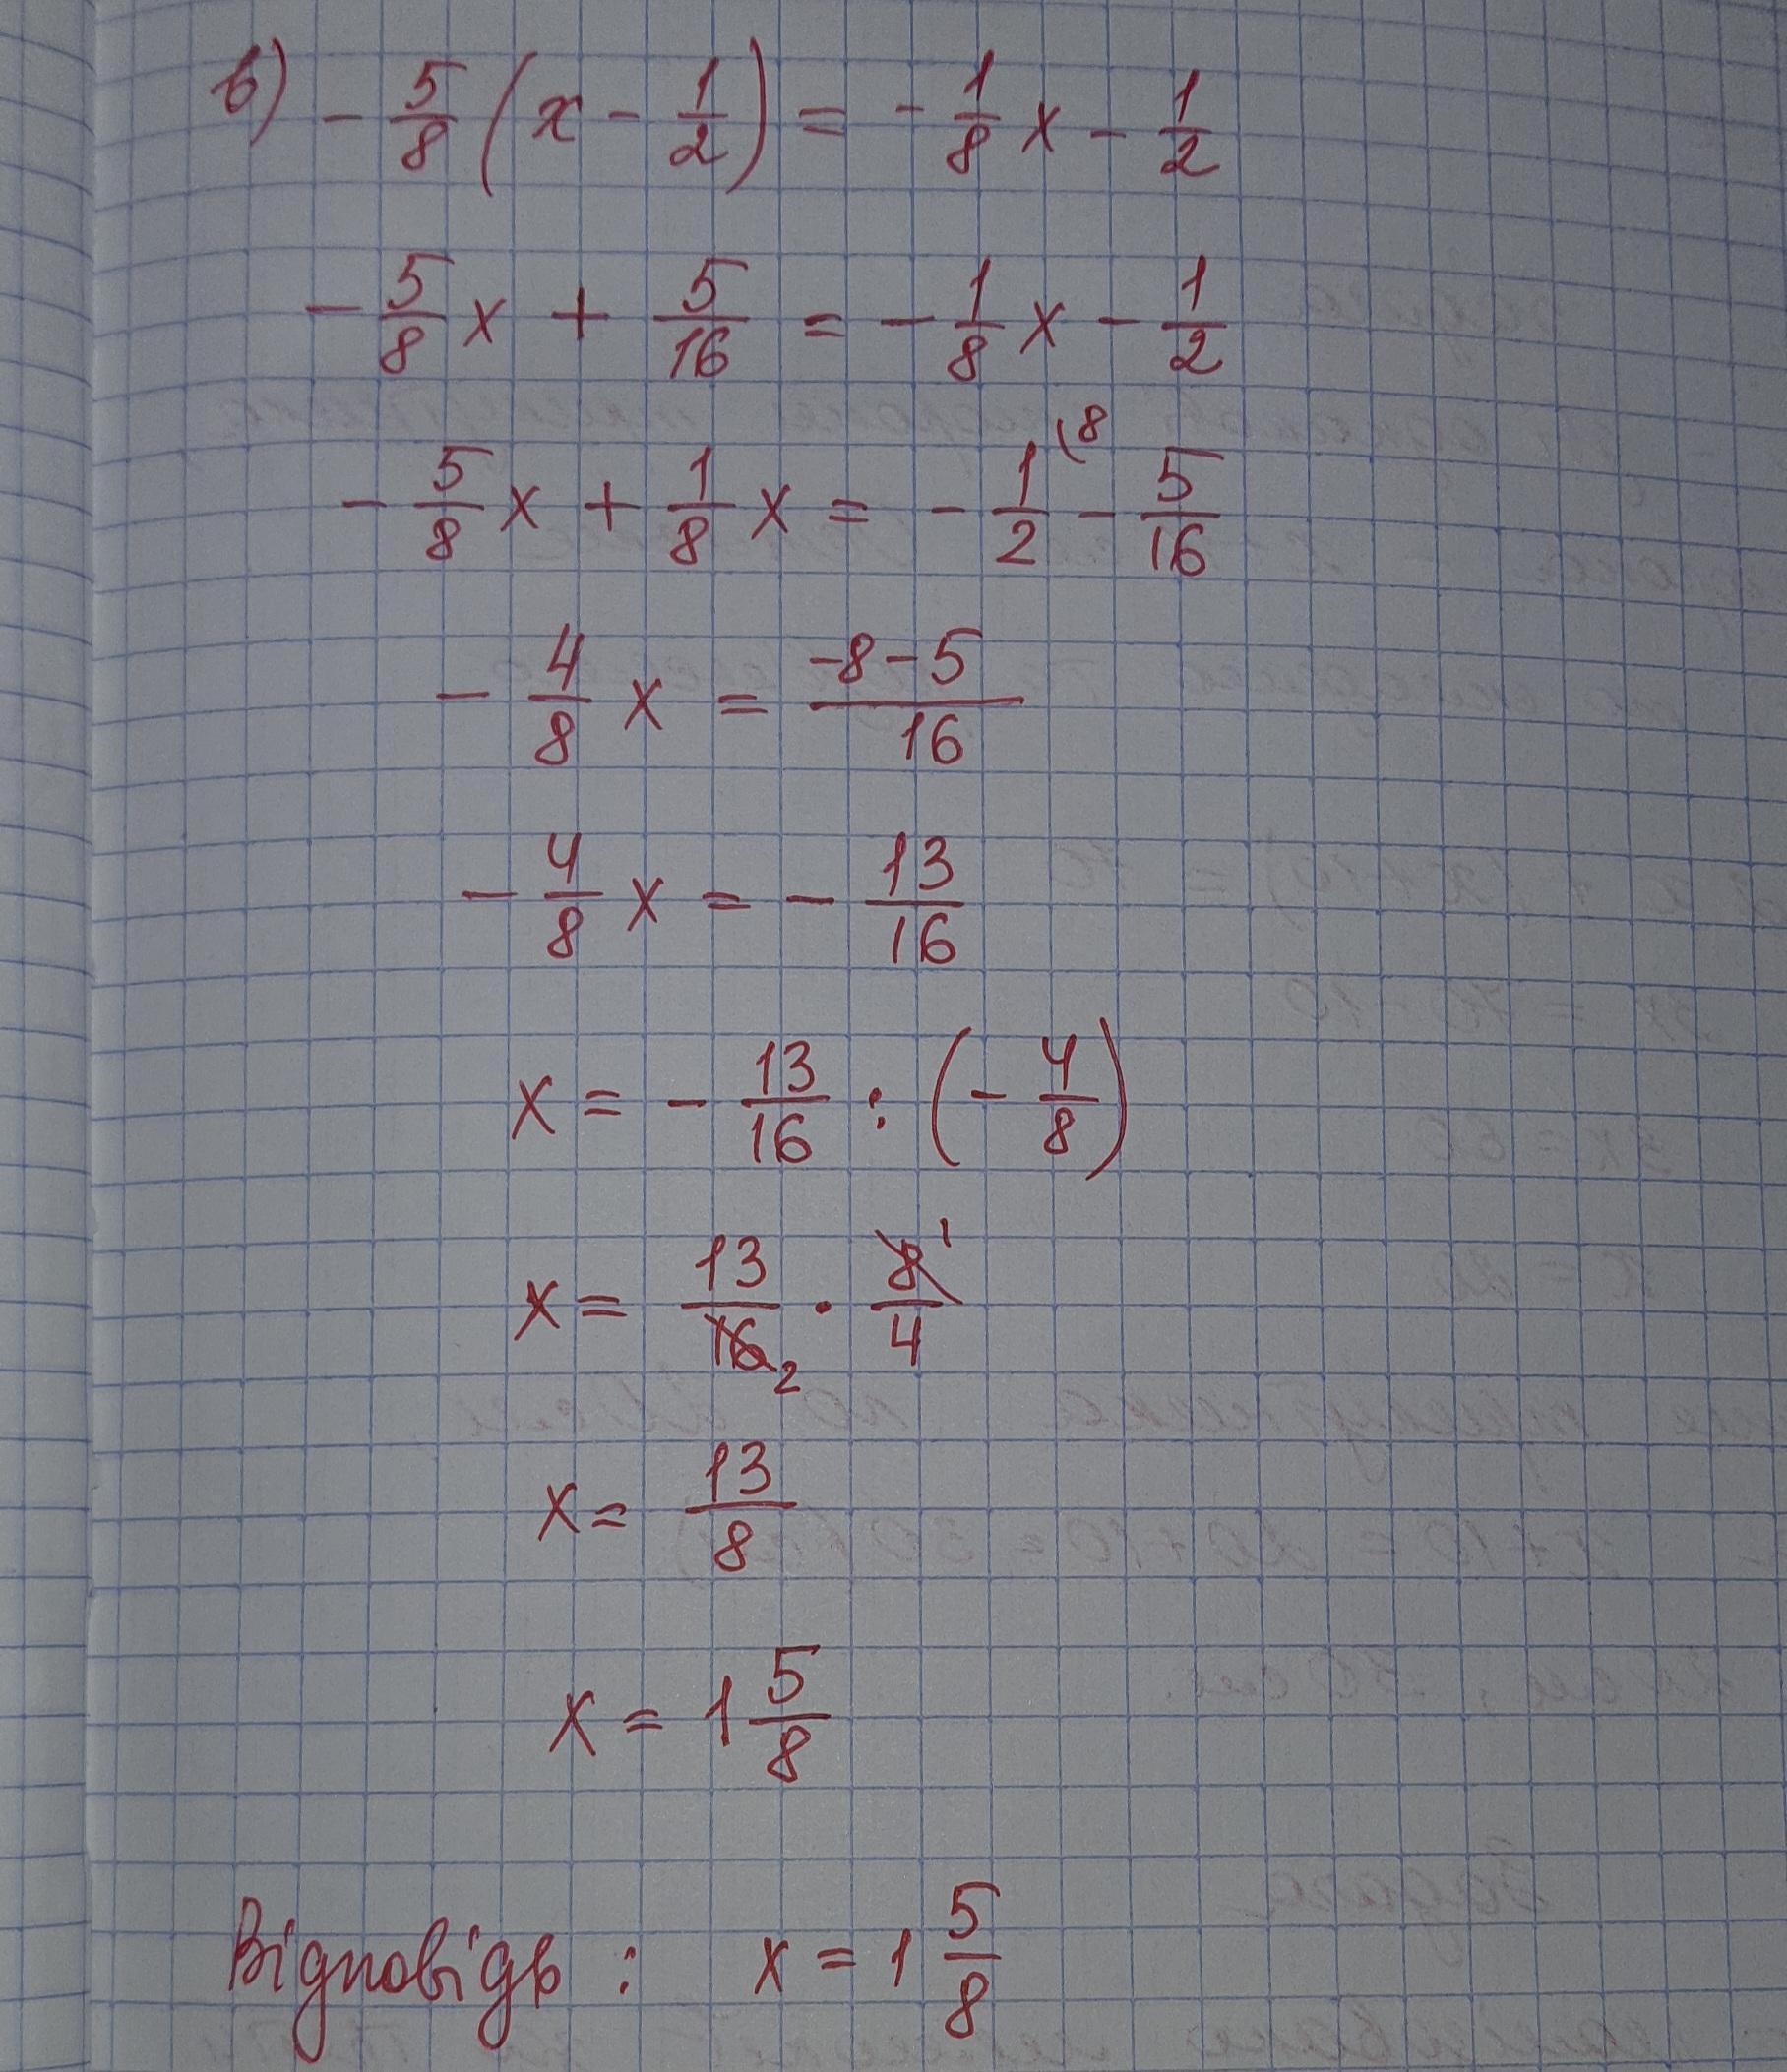 в) - 5/8 (x - 1/2) = - 1/8 x - 1/2
- 5/8 x + 5/16 = - 1/8 x - 1/2
- 5/8 x + 1/8 x = - 1/2 (8 - 5/16
- 4/8 x = -8-5/16
- 4/8 x = - 13/16
x = - 13/16 : (- 4/8)
x = 13/16 2 · 8 1/4
x = 13/8
x = 1 5/8
Відповідь : x = 1 5/8